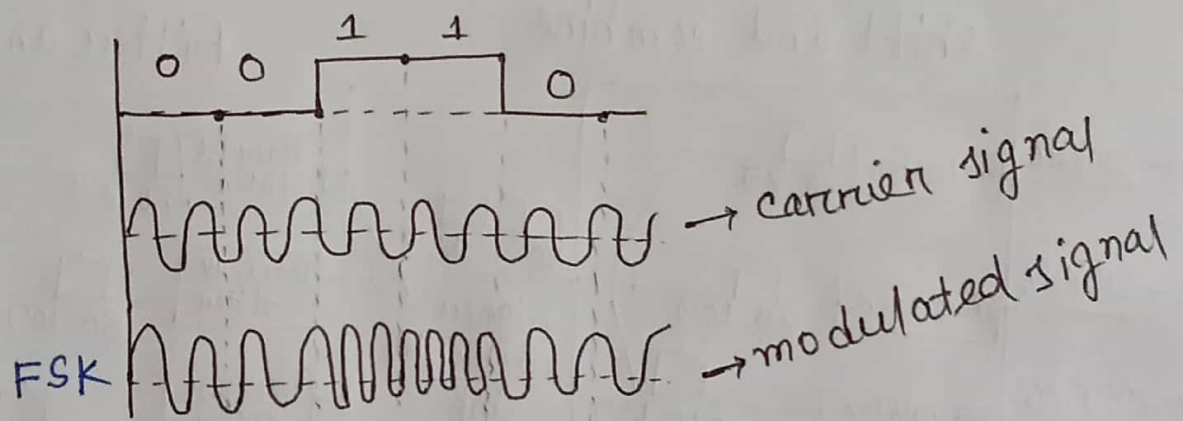 0 0 1 1 0
carrier signal
FSK
modulated signal